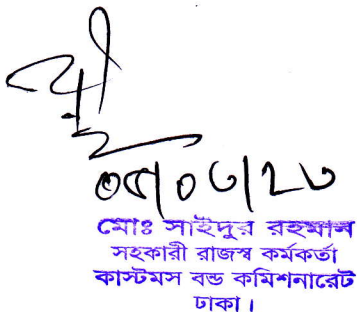 ০৫/০৩/২৩
মোঃ সাইদুর রহমান
সহকারী রাজস্ব কর্মকর্তা
কাস্টমস বন্ড কমিশনারেট
ঢাকা।